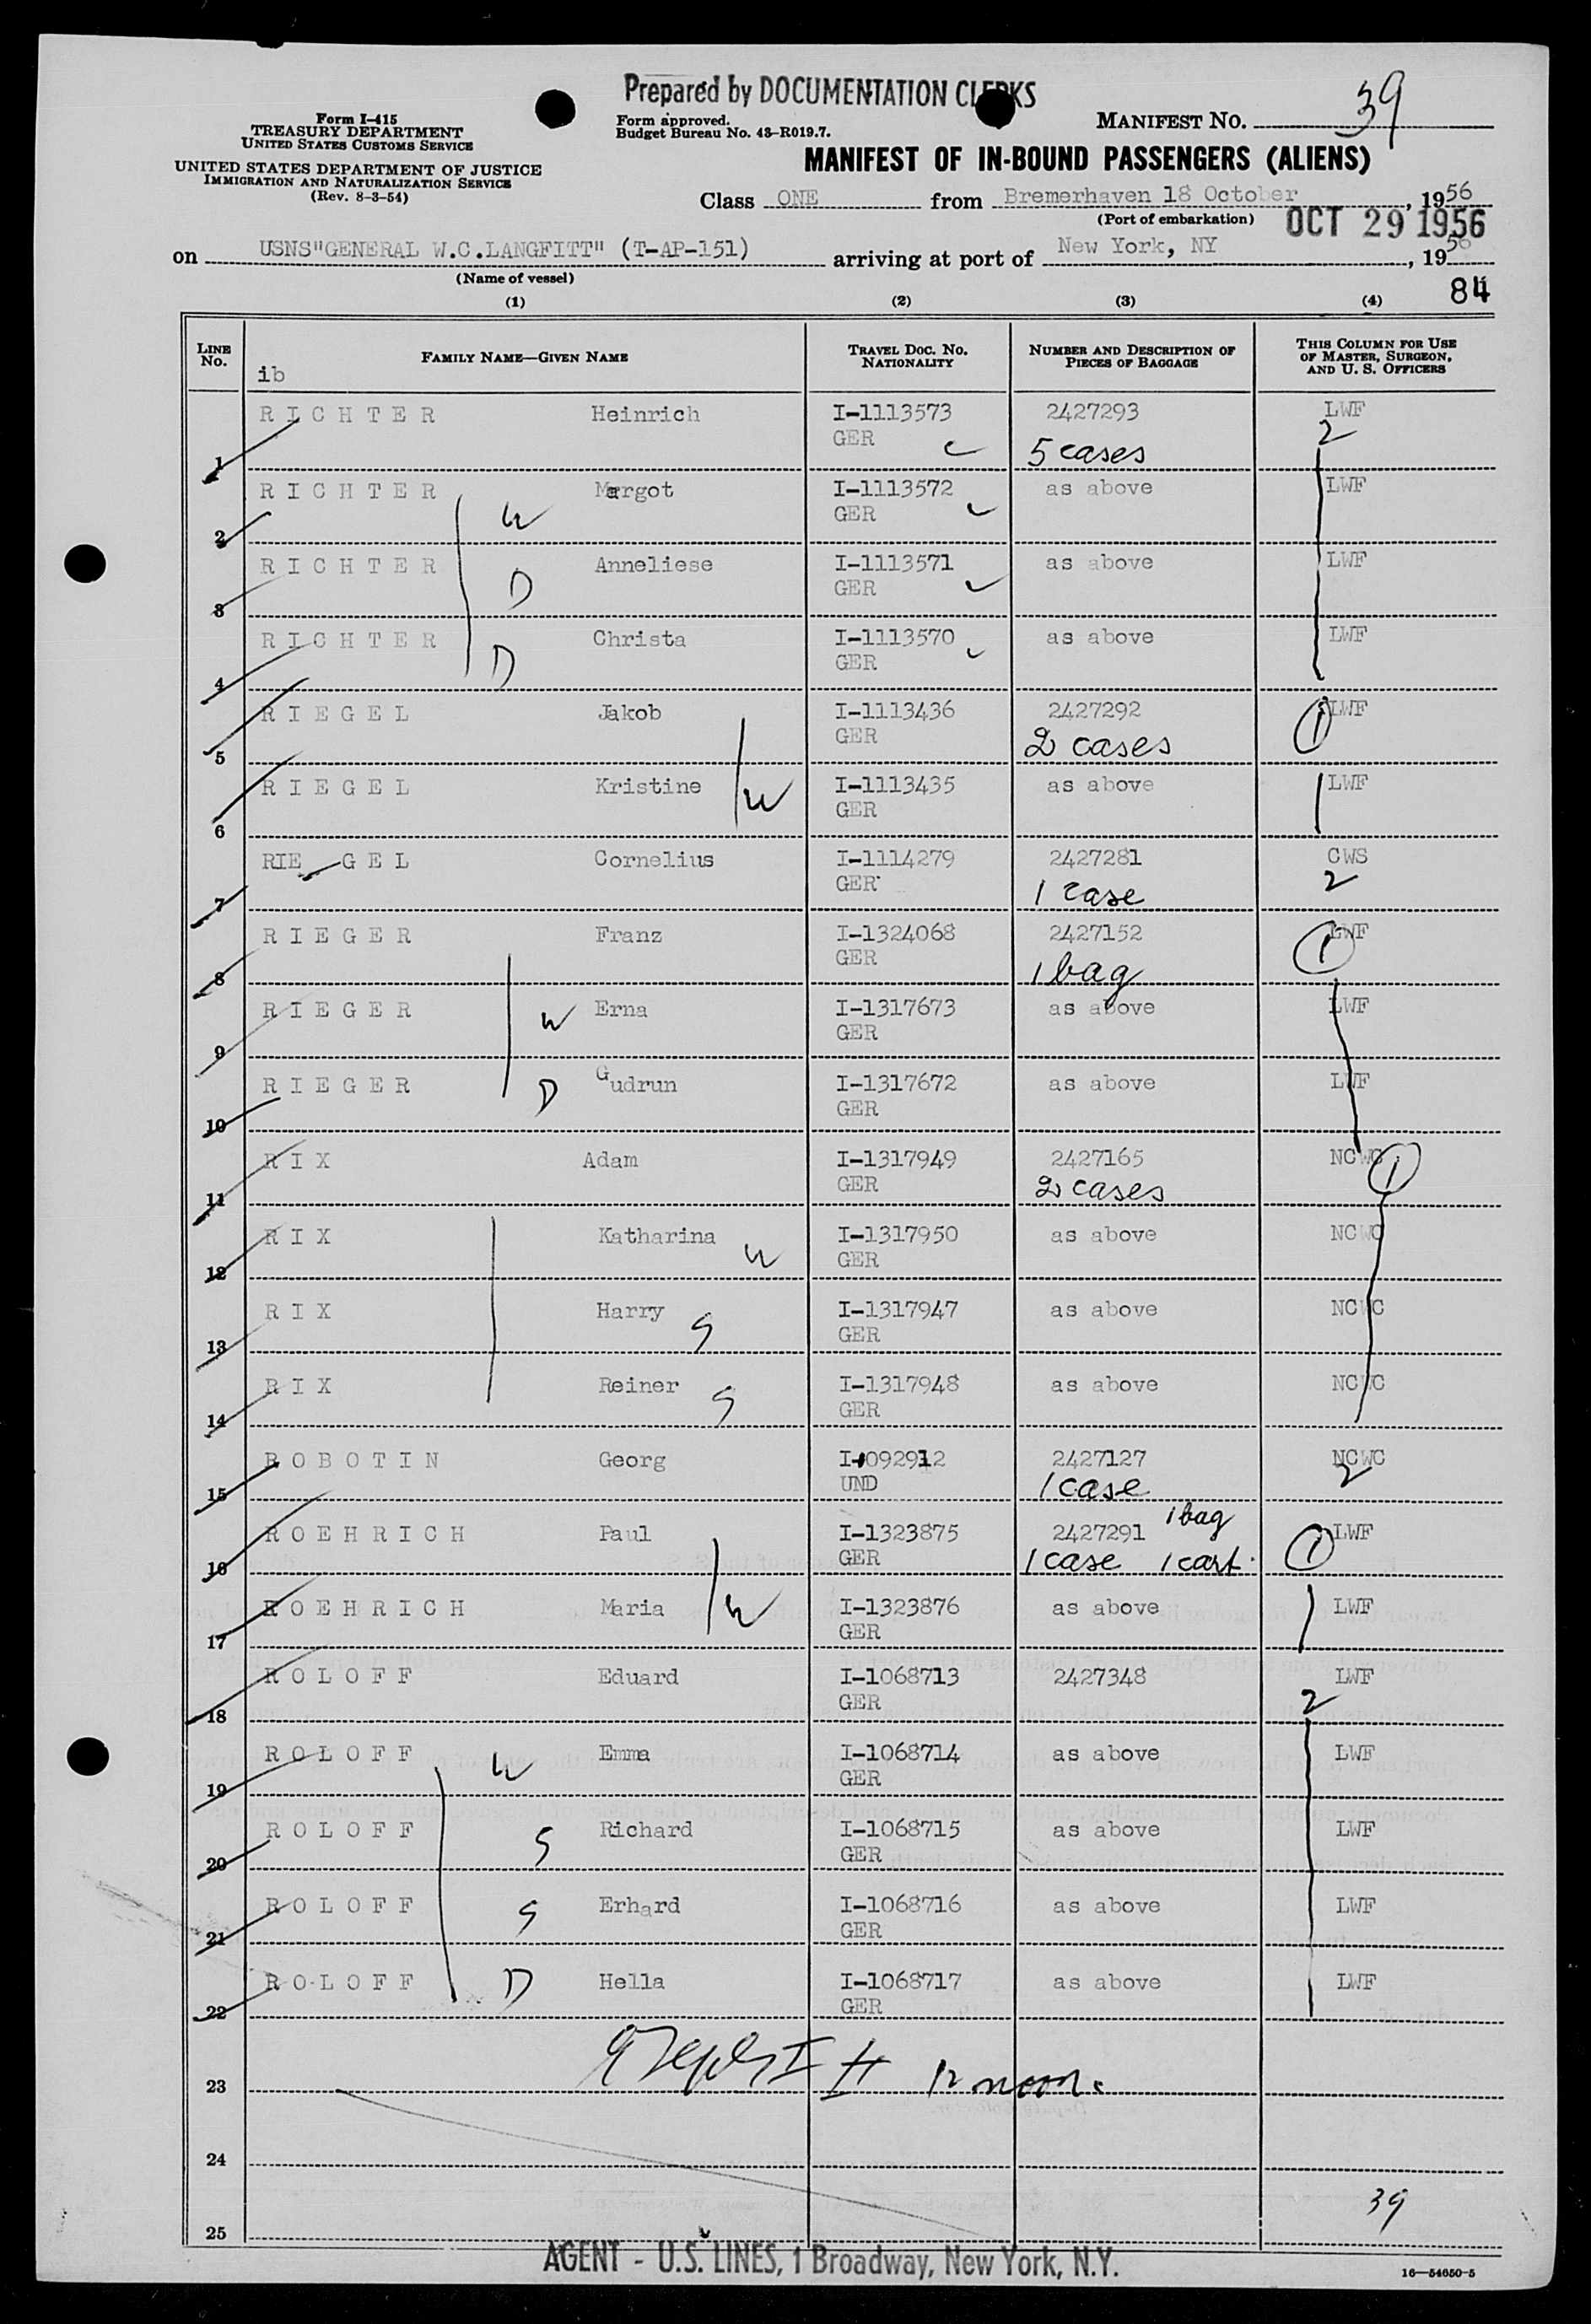 Prepared by DOCUMENTATION CLERKS
Form I-415
TREASURY DEPARTMENT
UNITED STATES CUSTOMS SERVICE
UNITED STATES DEPARTMENT OF JUSTICE
IMMIGRATION AND NATURALIZATION SERVICE
(Rev. 8-3-54)
Form approved.
Budget Bureau No. 43-R019.7.
MANIFEST NO. 39
MANIFEST OF IN-BOUND PASSENGERS (ALIENS)
Class ONE from Bremerhaven 18 October, 1956
(Port of embarkation) OCT 29 1956
on USNS"GENERAL W.C.LANGFITT" (T-AP-151) arriving at port of New York, NY, 1956
(Name of vessel)
(1) (2) (3) (4) 84
LINE NO. FAMILY NAME—GIVEN NAME TRAVEL DOC. NO. NATIONALITY NUMBER AND DESCRIPTION OF PIECES OF BAGGAGE THIS COLUMN FOR USE OF MASTER, SURGEON, AND U. S. OFFICERS
ib
1 RICHTER Heinrich I-1113573 GER 2427293 5 cases LWF 2
2 RICHTER W Margot I-1113572 GER as above LWF
3 RICHTER D Anneliese I-1113571 GER as above LWF
4 RICHTER D Christa I-1113570 GER as above LWF
5 RIEGEL Jakob I-1113436 GER 2427292 2 cases 1 LWF
6 RIEGEL Kristine W I-1113435 GER as above LWF
7 RIE GEL Cornelius I-1114279 GER 2427281 1 case CWS 2
8 RIEGER Franz I-1324068 GER 2427152 1 bag 1 LWF
9 RIEGER W Erna I-1317673 GER as above LWF
10 RIEGER D Gudrun I-1317672 GER as above LWF
11 RIX Adam I-1317949 GER 2427165 2 cases NCWC 1
12 RIX Katharina W I-1317950 GER as above NCWC
13 RIX Harry S I-1317947 GER as above NCWC
14 RIX Reiner S I-1317948 GER as above NCWC
15 ROBOTIN Georg I-1092912 UND 2427127 1 case NCWC 2
16 ROEHRICH Paul I-1323875 GER 2427291 1 bag 1 case 1 cart. 1 LWF
17 ROEHRICH Maria W I-1323876 GER as above LWF
18 ROLOFF Eduard I-1068713 GER 2427348 LWF 2
19 ROLOFF W Emma I-1068714 GER as above LWF
20 ROLOFF S Richard I-1068715 GER as above LWF
21 ROLOFF S Erhard I-1068716 GER as above LWF
22 ROLOFF D Hella I-1068717 GER as above LWF
23 12 noon.
24
39
25
AGENT - U.S. LINES, 1 Broadway, New York, N.Y.
16—54650-5